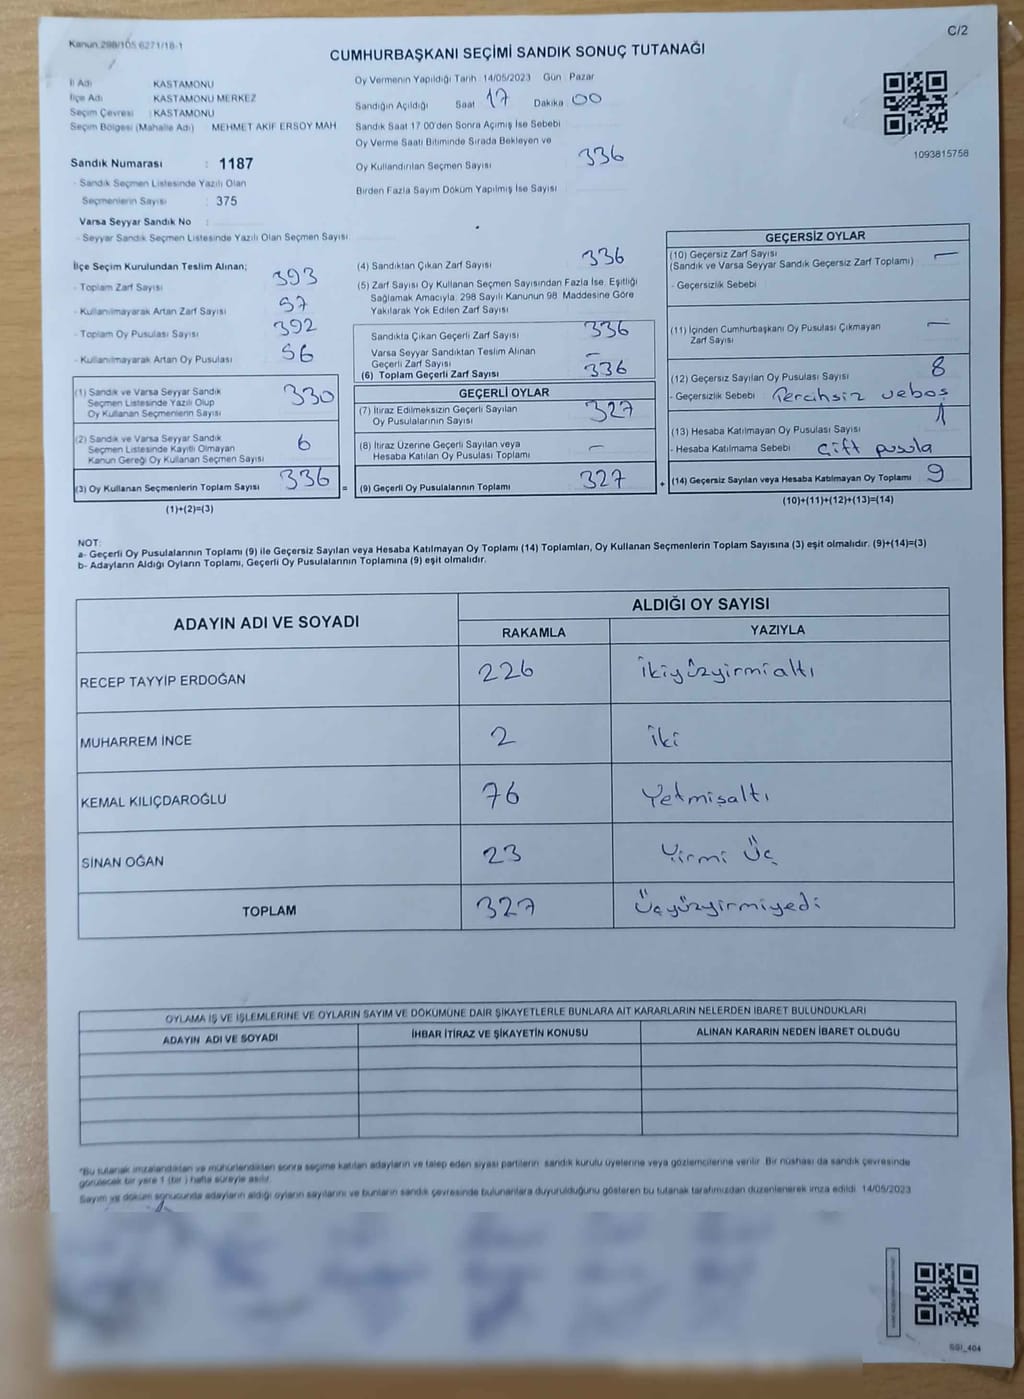 Kanun 298/105 6271/18-1
C/2
CUMHURBAŞKANI SEÇİMİ SANDIK SONUÇ TUTANAĞI
İl Adı KASTAMONU
İlçe Adı KASTAMONU MERKEZ
Seçim Çevresi : KASTAMONU
Seçim Bölgesi (Mahalle Adı) MEHMET AKİF ERSOY MAH
Sandık Numarası : 1187
- Sandık Seçmen Listesinde Yazılı Olan
Seçmenlerin Sayısı : 375
Varsa Seyyar Sandık No :
- Seyyar Sandık Seçmen Listesinde Yazılı Olan Seçmen Sayısı
Oy Vermenin Yapıldığı Tarih 14/05/2023 Gün Pazar
Sandığın Açıldığı Saat 17 Dakika 00
Sandık Saat 17 00'den Sonra Açımış İse Sebebi
Oy Verme Saati Bitiminde Sırada Bekleyen ve
Oy Kullandırılan Seçmen Sayısı 336
Birden Fazla Sayım Döküm Yapılmış İse Sayısı
1093815758
İlçe Seçim Kurulundan Teslim Alınan;
- Toplam Zarf Sayısı 393
- Kullanılmayarak Artan Zarf Sayısı 57
- Toplam Oy Pusulası Sayısı 392
- Kullanılmayarak Artan Oy Pusulası 56
(1) Sandık ve Varsa Seyyar Sandık
Seçmen Listesinde Yazılı Olup
Oy Kullanan Seçmenlerin Sayısı 330
(2) Sandık ve Varsa Seyyar Sandık
Seçmen Listesinde Kayıtlı Olmayan
Kanun Gereği Oy Kullanan Seçmen Sayısı 6
(3) Oy Kullanan Seçmenlerin Toplam Sayısı 336 =
(1)+(2)=(3)
(4) Sandıktan Çıkan Zarf Sayısı 336
(5) Zarf Sayısı Oy Kullanan Seçmen Sayısından Fazla İse, Eşitliği
Sağlamak Amacıyla, 298 Sayılı Kanunun 98. Maddesine Göre
Yakılarak Yok Edilen Zarf Sayısı
Sandıkta Çıkan Geçerli Zarf Sayısı 336
Varsa Seyyar Sandıktan Teslim Alınan
Geçerli Zarf Sayısı –
(6) Toplam Geçerli Zarf Sayısı 336
GEÇERLİ OYLAR
(7) İtiraz Edilmeksizin Geçerli Sayılan
Oy Pusulalarının Sayısı 327
(8) İtiraz Üzerine Geçerli Sayılan veya
Hesaba Katılan Oy Pusulası Toplamı –
(9) Geçerli Oy Pusulalarının Toplamı 327 +
GEÇERSİZ OYLAR
(10) Geçersiz Zarf Sayısı
(Sandık ve Varsa Seyyar Sandık Geçersiz Zarf Toplamı) –
- Geçersizlik Sebebi
(11) İçinden Cumhurbaşkanı Oy Pusulası Çıkmayan
Zarf Sayısı –
(12) Geçersiz Sayılan Oy Pusulası Sayısı 8
- Geçersizlik Sebebi Tercihsiz veboş
(13) Hesaba Katılmayan Oy Pusulası Sayısı 1
- Hesaba Katılmama Sebebi Çift pusula
(14) Geçersiz Sayılan veya Hesaba Katılmayan Oy Toplamı 9
(10)+(11)+(12)+(13)=(14)
NOT:
a- Geçerli Oy Pusulalarının Toplamı (9) ile Geçersiz Sayılan veya Hesaba Katılmayan Oy Toplamı (14) Toplamları, Oy Kullanan Seçmenlerin Toplam Sayısına (3) eşit olmalıdır. (9)+(14)=(3)
b- Adayların Aldığı Oyların Toplamı, Geçerli Oy Pusulalarının Toplamına (9) eşit olmalıdır.
ADAYIN ADI VE SOYADI
ALDIĞI OY SAYISI
RAKAMLA YAZIYLA
RECEP TAYYİP ERDOĞAN 226 İkiyüzyirmialtı
MUHARREM İNCE 2 İki
KEMAL KILIÇDAROĞLU 76 Yetmişaltı
SİNAN OĞAN 23 Yirmi Üç
TOPLAM 327 Üçyüzyirmiyedi
OYLAMA İŞ VE İŞLEMLERİNE VE OYLARIN SAYIM VE DÖKÜMÜNE DAİR ŞİKAYETLERLE BUNLARA AİT KARARLARIN NELERDEN İBARET BULUNDUKLARI
ADAYIN ADI VE SOYADI İHBAR İTİRAZ VE ŞİKAYETİN KONUSU ALINAN KARARIN NEDEN İBARET OLDUĞU
*Bu tutanak imzalandıktan ve mühürlendikten sonra seçime katılan adayların ve talep eden siyasi partilerin sandık kurulu üyelerine veya gözlemcilerine verilir. Bir nüshası da sandık çevresinde
görülecek bir yere 1 (bir) hafta süreyle asılır.
Sayım ve döküm sonucunda adayların aldığı oyların sayılarını ve bunların sandık çevresinde bulunanlara duyurulduğunu gösteren bu tutanak tarafımızdan düzenlenerek imza edildi. 14/05/2023
SGI_404